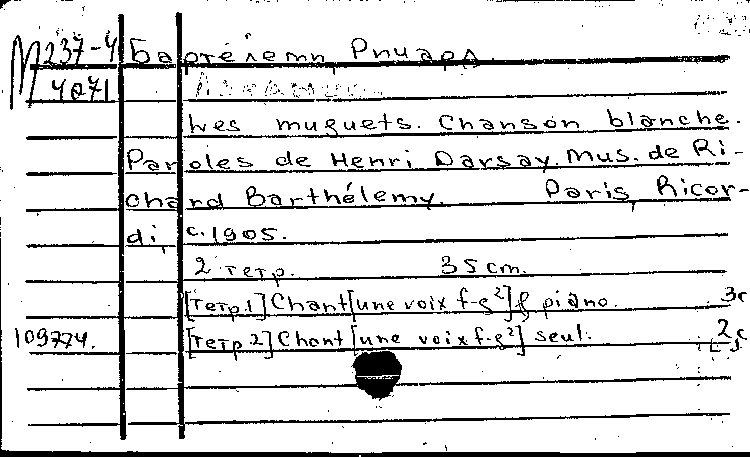 М 237-4 Бартелеми, Ришард
4071
Les muguets. Chanson blanche.
Paroles de Henri Darsay. Mus. de Ri-
chard Barthélemy. Paris, Ricor-
di, c. 1905.
2 тетр. 35 cm.
[тетр. 1] Chant [une voix f-g²] & piano. 3с
109774. [тетр 2] Chant [une voix f-g²] seul. 2с